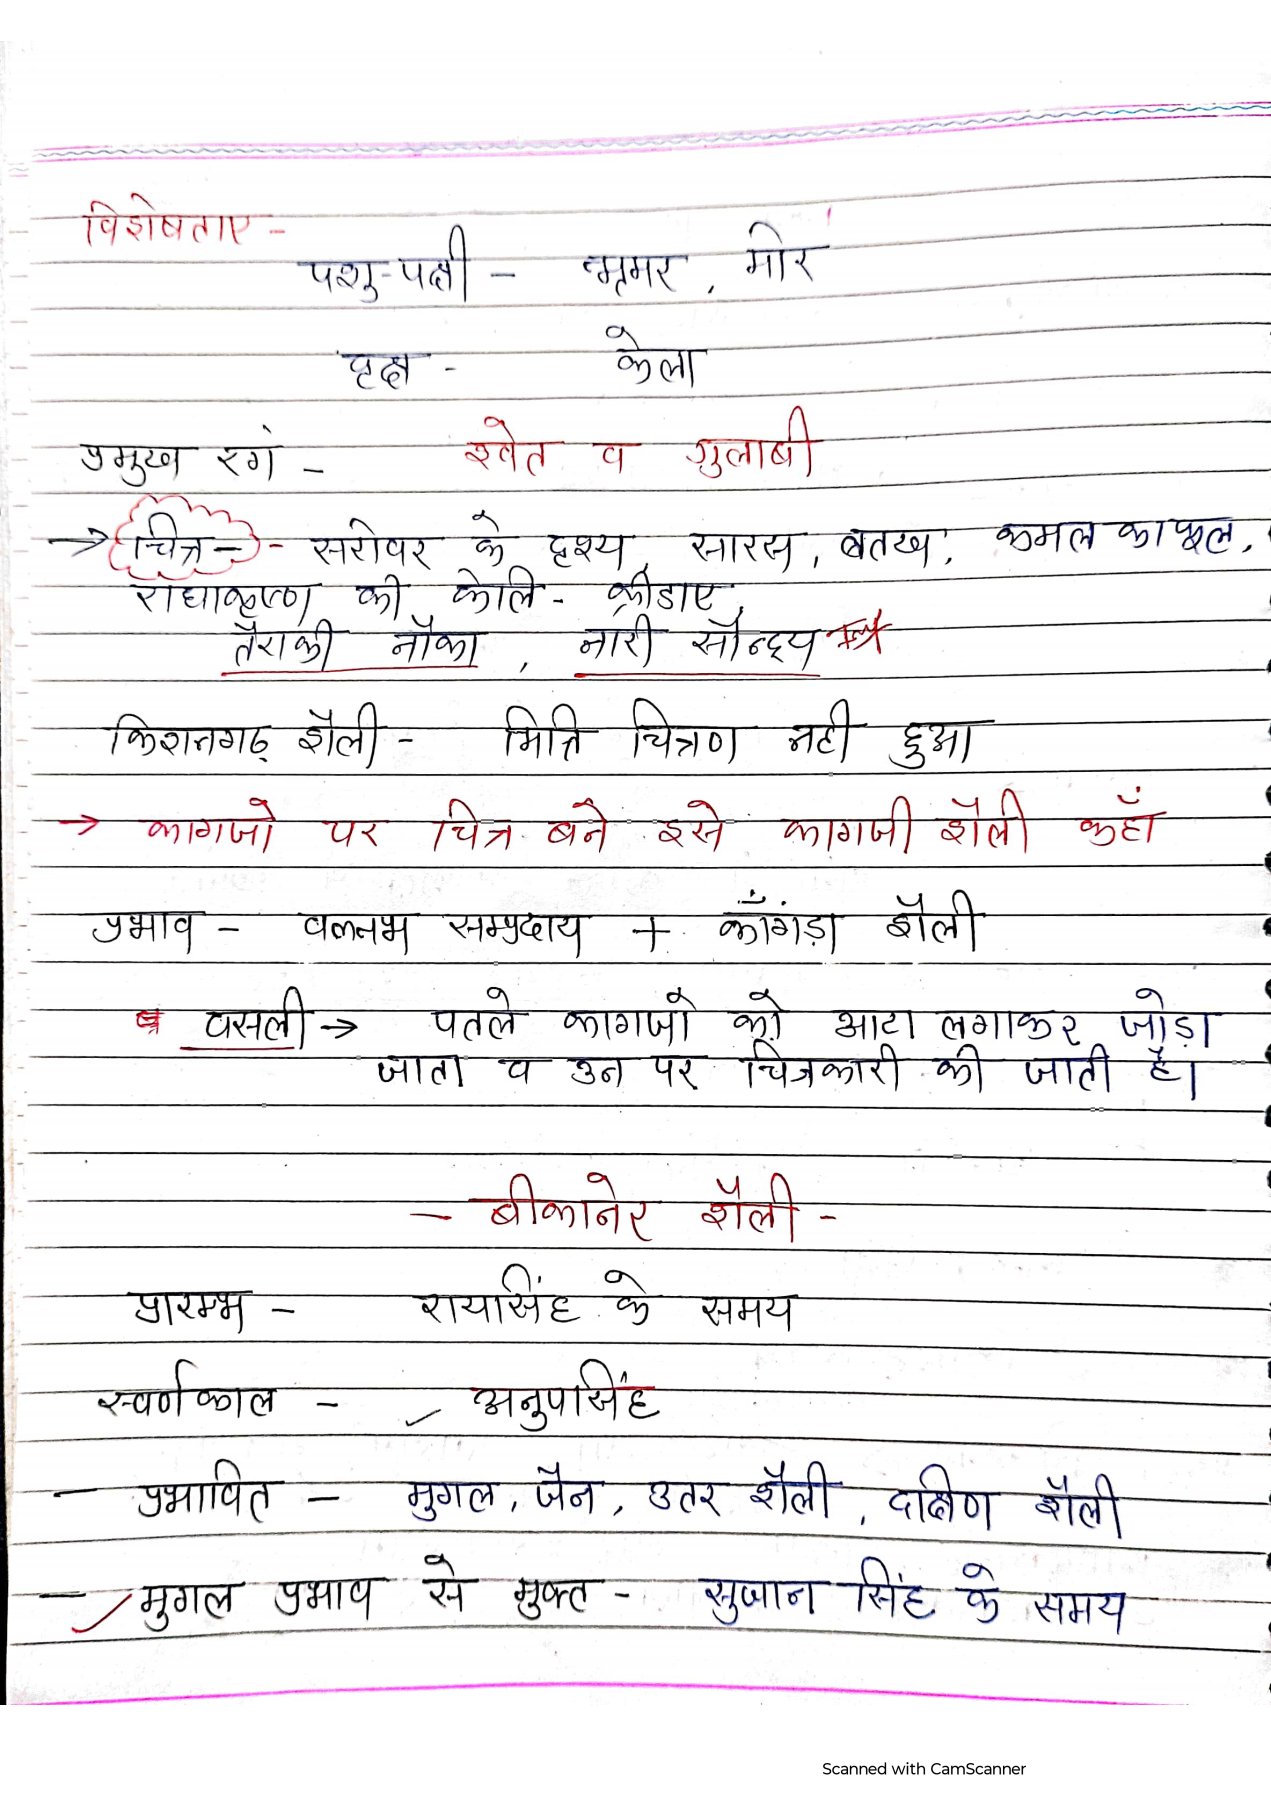 विशेषताए -
पशु-पक्षी - भ्रमर, मोर
वृक्ष - केला
प्रमुख रगं - श्वेत व गुलाबी
→ चित्र - - सरोवर के दृश्य, सारस, बतख, कमल का फूल,
राधाकृष्ण की केलि - क्रीडाए,
तैराकी नौका, नारी सौन्द्रय
किशनगढ़ शैली - भित्ति चित्रण नही हुआ
→ कागजो पर चित्र बने इसे कागजी शैली कहाँ
प्रभाव - वल्लभ सम्प्रदाय + काँगंड़ा शैली
वसली → पतले कागजो को आटा लगाकर जोड़ा
जाता व उन पर चित्रकारी की जाती है।
- बीकानेर शैली -
प्रारम्भ - रायासिंह के समय
स्वर्णकाल - अनुपसिंह
- प्रभावित - मुगल, जैन, उतर शैली, दक्षिण शैली
- मुगल प्रभाव से मुक्त - सुजान सिंह के समय
Scanned with CamScanner